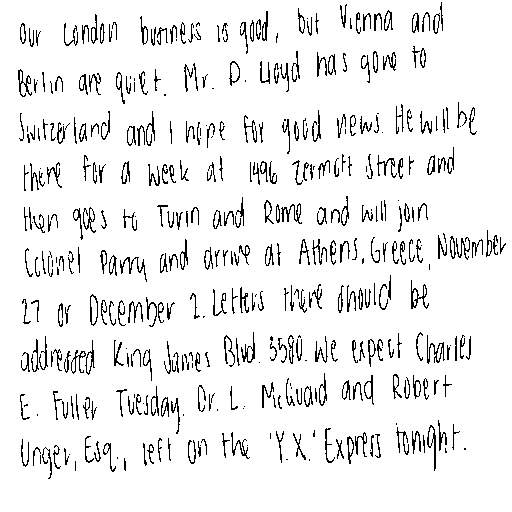 Our London business is good, but Vienna and
Berlin are quiet. Mr. D. Lloyd has gone to
Switzerland and I hope for good news. He will be
there for a week at 1496 Zermott Street and
then goes to Turin and Rome and will join
Colonel Parry and arrive at Athens, Greece, November
27 or December 2. Letters there should be
addressed King James Blvd. 3580. We expect Charles
E. Fuller Tuesday. Dr. L. McQuaid and Robert
Unger, Esq., left on the 'Y.X.' Express tonight.